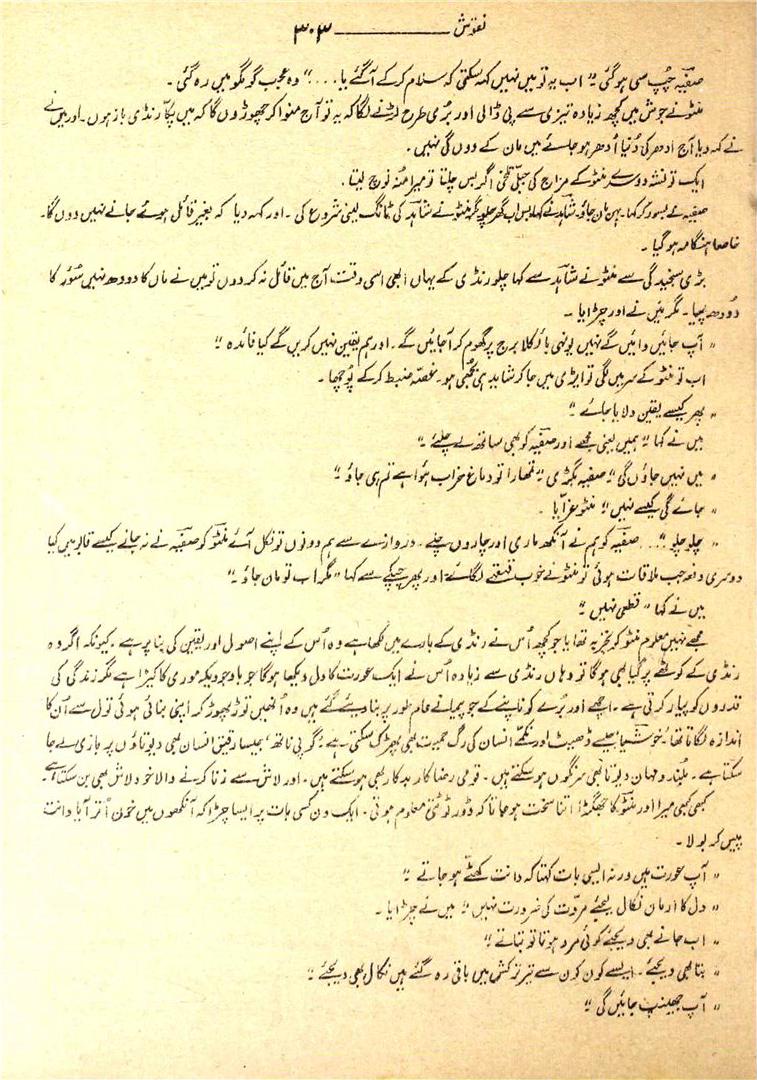 نقوش ــــــــــ ۳۰۳
صفیہ چُپ سی ہوگئی۔" اب یہ تو میں نہیں کہہ سکتی کہ سلام کرکے آگئے یا...." وہ عجب گومگو میں رہ گئی۔
منٹو نے جوش میں کچھ زیادہ تیزی سے پی ڈالی اور بُری طرح لڑنے لگا کہ یہ تو آج منوا کر چھوڑوں گا کہ میں پکّا رنڈی باز ہوں۔ اور میں نے
نے کہہ دیا آج ادھر کی دُنیا اُدھر ہو جائے میں مان کے دوں گی نہیں۔
ایک تو نشہ دوسرے منٹو کے مزاج کی جبلّی تلخی اگر بس چلتا تو میرا مُنہ نوچ لیتا۔
صفیہ نے بسور کر کہا۔ بہن مان جاؤ۔ شاہد نے کہا بس اب گھر چلو مگر منٹو نے شاہد کی ٹانگ لینی شروع کی۔ اور کہہ دیا کہ بغیر قائل ہوئے جانے نہیں دوں گا۔
خاصا ہنگامہ ہو گیا۔
بڑی سنجیدگی سے منٹو نے شاہد سے کہا چلو رنڈی کے یہاں ابھی اسی وقت آج میں قائل نہ کردوں تو میں نے ماں کا دودھ نہیں سُوَر کا
دُودھ پیا۔ مگر میں نے اور چڑایا۔
" آپ جائیں وائیں گے نہیں یونہی بائیکلا برج پر گھوم کر آجائیں گے۔ اور ہم یقین نہیں کریں گے کیا فائدہ"
اب تو منٹو کے سر میں لگی تو ایڑی میں جا کر شاید ہی بجھی ہو۔ غصّہ ضبط کرکے پُوچھا۔
" پھر کیسے یقین دلایا جائے۔"
میں نے کہا " ہمیں یعنی مجھے اور صفیہ کو بھی ساتھ لے چلئے۔"
" میں نہیں جاؤں گی" صفیہ بگڑی " تمھارا تو دماغ خراب ہوا ہے تم ہی جاؤ۔"
" جائے گی کیسے نہیں" منٹو غرّایا۔
" چلو چلو"... صفیہ کو ہم نے آنکھ ماری اور چاروں چلے۔ دروازے سے ہم دونوں تو نکل آئے منٹو کو صفیہ نے نہ جانے کیسے قابو میں کیا
دوسری دفعہ جب ملاقات ہوئی تو منٹو نے خوب قہقہے لگائے اور پھر چپکے سے کہا " مگر اب تو مان جاؤ۔"
میں نے کہا " قطعی نہیں۔"
مجھے نہیں معلوم منٹو کو تجربہ تھا یا جو کچھ اُس نے رنڈی کے بارے میں لکھا ہے وہ اُس کے اپنے اصول اور یقین کی بنا پر ہے۔ کیونکہ اگر وہ
رنڈی کے کوٹھے پر گیا بھی ہوگا تو وہاں رنڈی سے زیادہ اُس نے ایک عورت کا دل دیکھا ہوگا جو باوجودیکہ موری کا کیڑا ہے مگر زندگی کی
قدروں کو پیار کرتی ہے۔ اچھے اور بُرے کو ناپنے کے جو پیمانے عام طور پر بنا دیئے گئے ہیں وہ اُنھیں توڑ پھوڑ کر اپنی بنائی ہوئی تول سے اُن کا
اندازہ لگاتا تھا، خوشیا جیسے ڈھیٹ اور نکمّے انسان کی رگِ حمیت بھی بھڑک سکتی ہے۔ گوپی ناتھ جیسا رقیق انسان بھی دیوتاؤں پر بازی لے جا
سکتا ہے۔ بلند و مہان دیوتا بھی سرنگوں ہو سکتے ہیں۔ قومی رضا کار بدکار بھی ہو سکتے ہیں۔ اور لاش سے زنا کرنے والا خود لاش بھی بن سکتا ہے۔
کبھی کبھی میرا اور منٹو کا جھگڑا اتنا سخت ہو جاتا کہ ڈور ٹوٹتی معلوم ہوتی۔ ایک دن کسی بات پر ایسا چڑا کہ آنکھوں میں خون اُتر آیا دانت
پیس کر بولا۔
" آپ عورت ہیں ورنہ ایسی بات کہتا کہ دانت کھٹّے ہو جاتے۔"
" دل کا ارمان نکال لیجئے مروّت کی ضرورت نہیں" میں نے چڑایا۔
" اب جانے بھی دیجئے کوئی مرد ہوتا تو بتاتے"
" بتا بھی دیجئے۔ ایسے کون کون سے تیر ترکش میں باقی رہ گئے ہیں نکال بھی دیجئے۔"
" آپ جھینپ جائیں گی۔"